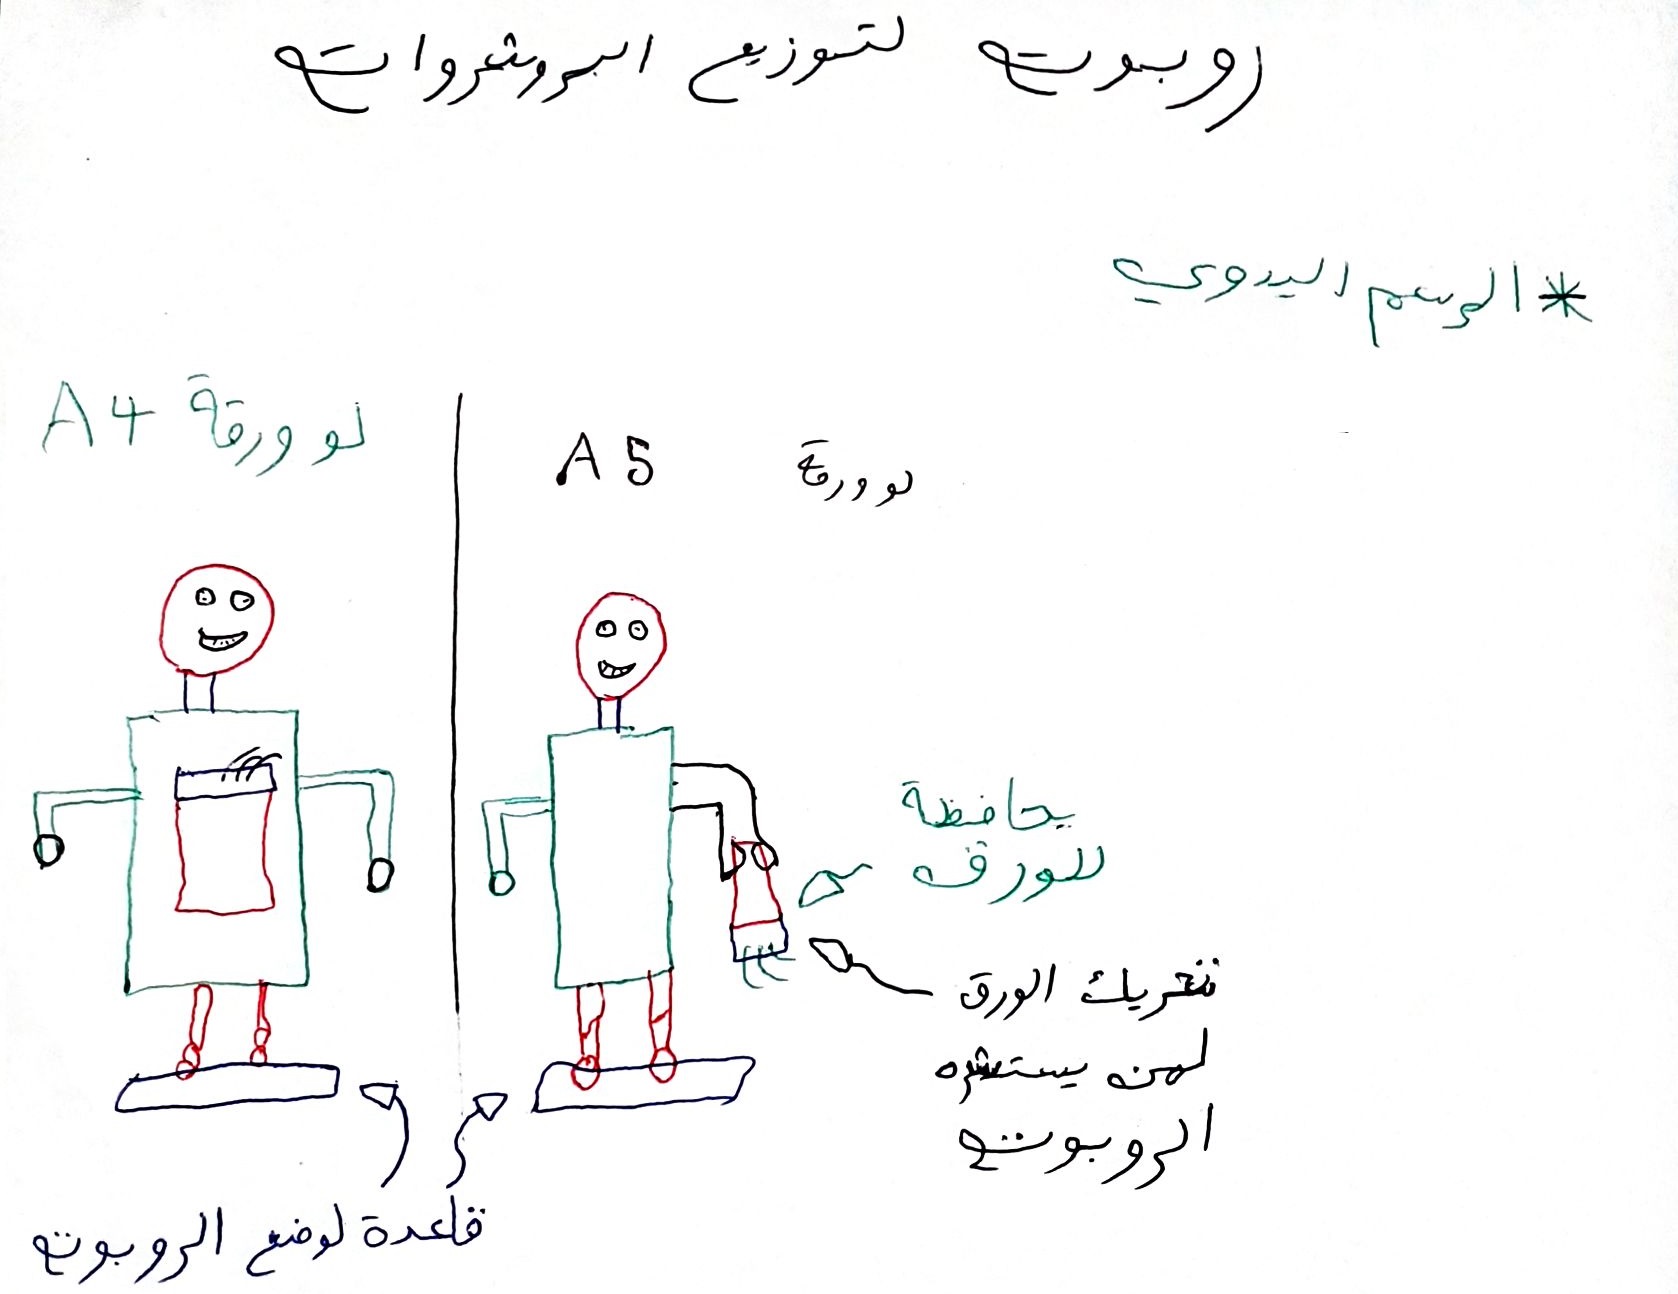 روبوت لتوزيع البروشروات
* الرسم اليدوي
لو ورقة A5
لو ورقة A4
حافظة
للورق
تحريك الورق
لمن يستشره
الروبوت
قاعدة لوضع الروبوت